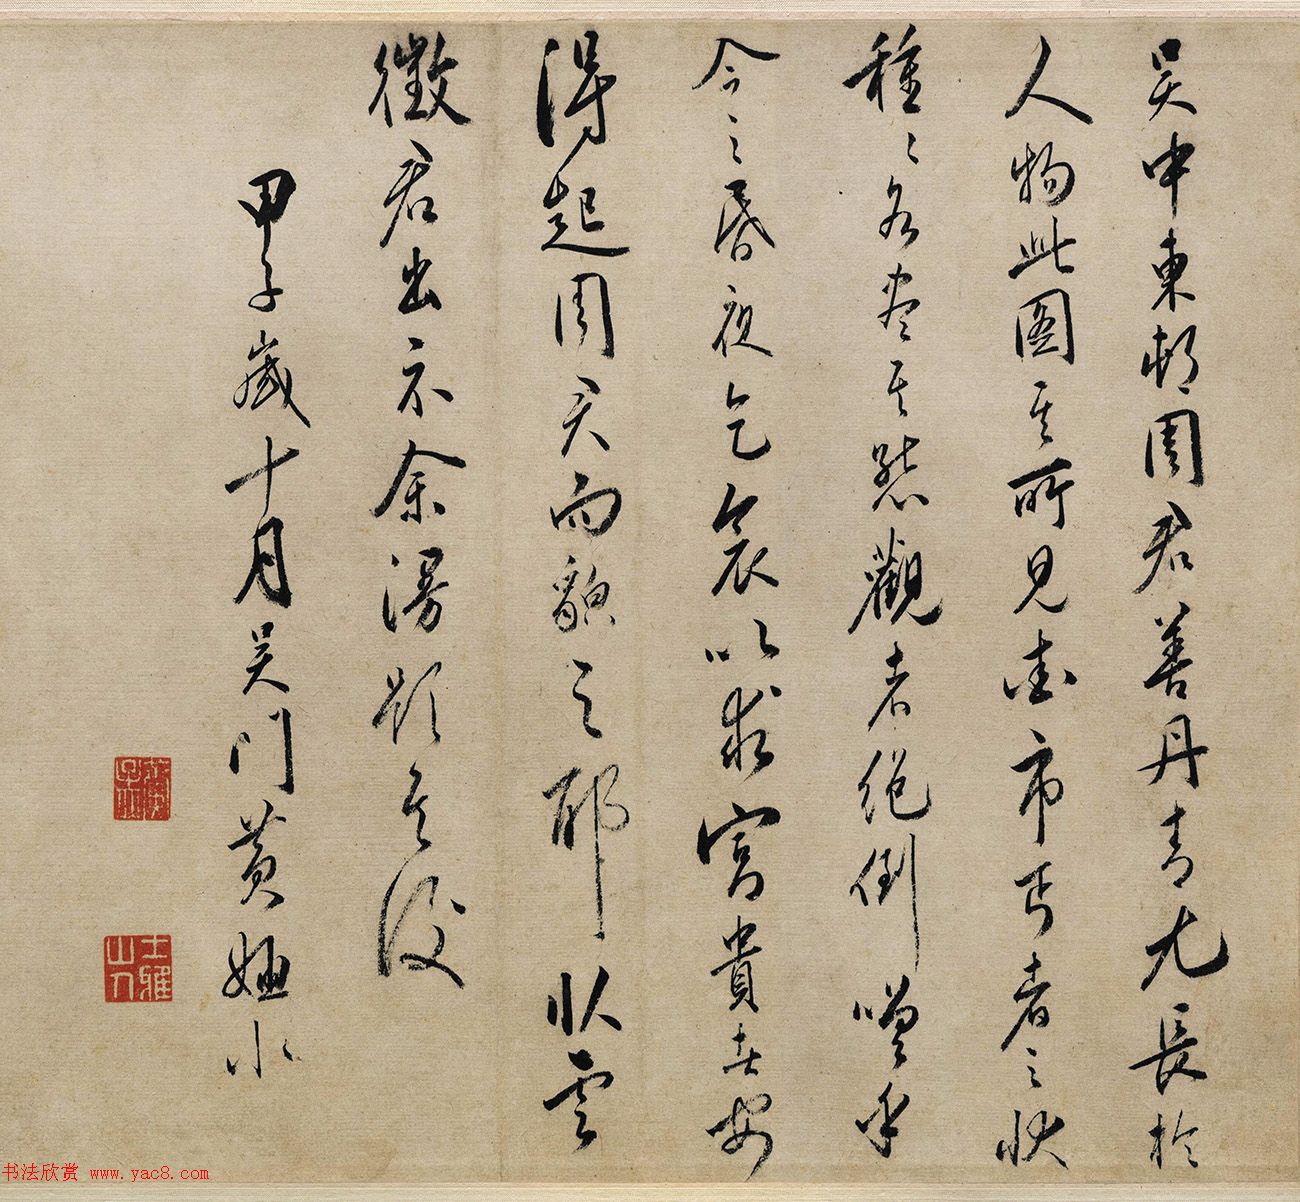 吳中東邨周君善丹青尤長於
人物此圖其所見畫市丐者之狀
種種各盡其態觀者絕倒嗟乎
今之昏夜乞哀以求富貴者安
得起周君而貌之耶臥雲
徵君出示余漫題其後
甲子歲十月吳門黃姬水
士雅山人
书法欣赏 www.yac8.com